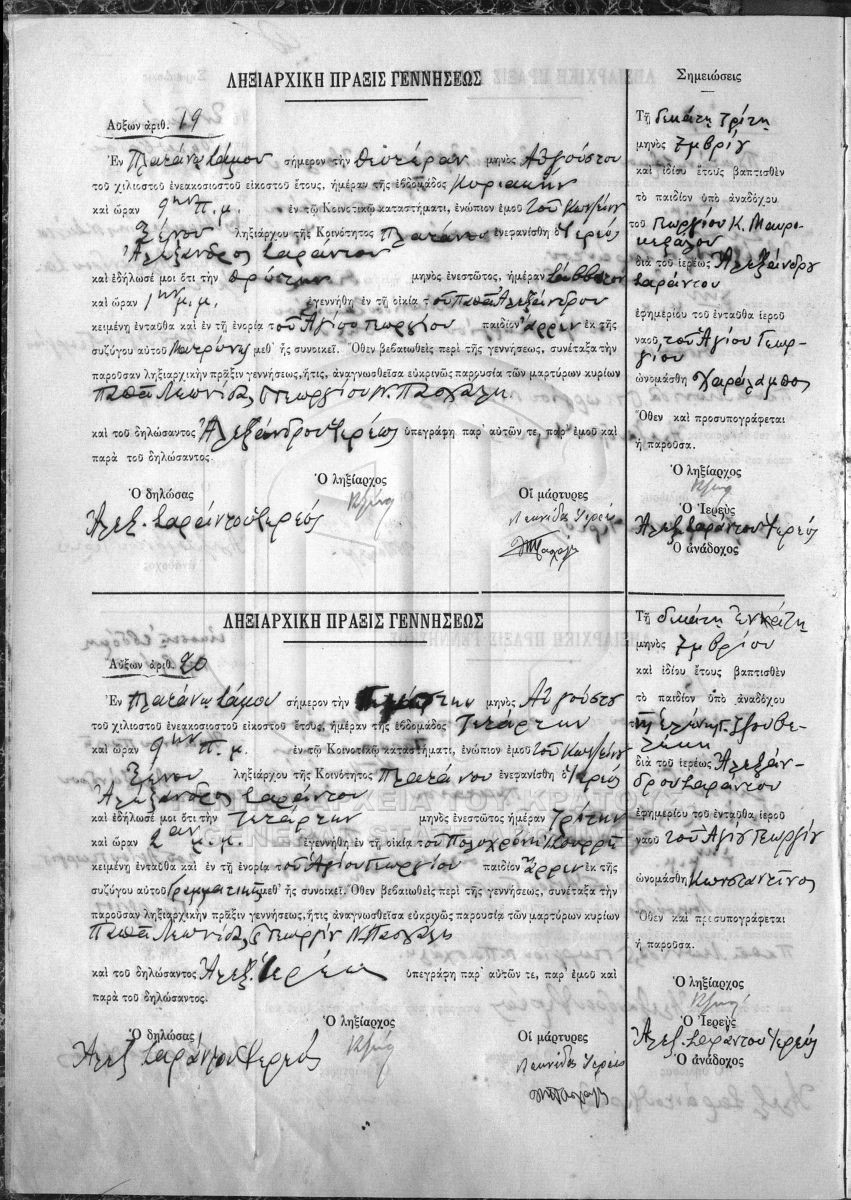 ΛΗΞΙΑΡΧΙΚΗ ΠΡΑΞΙΣ ΓΕΝΝΗΣΕΩΣ
Αὔξων ἀριθ. 19
Ἐν Πλατάνῳ Σάμου σήμερον τὴν δευτέραν μηνὸς Αὐγούστου
τοῦ χιλιοστοῦ ἐνεακοσιοστοῦ εἰκοστοῦ ἔτους, ἡμέραν τῆς ἑβδομάδος Κυριακὴν
καὶ ὥραν 9ην π.μ. ἐν τῷ Κοινοτικῷ καταστήματι, ἐνώπιον ἐμοῦ τοῦ Κων/ίνου
ληξιάρχου τῆς Κοινότητος Πλατάνου ἐνεφανίσθη ὁ Ἱερεὺς
Ἀλέξανδρος Σαράντου
καὶ ἐδήλωσέ μοι ὅτι τὴν πρώτην μηνὸς ἐνεστῶτος, ἡμέραν Σάββατον
καὶ ὥραν 1ην μ.μ. ἐγεννήθη ἐν τῇ οἰκίᾳ τοῦ Παπᾶ Αλεξάνδρου
κειμένῃ ἐνταῦθα καὶ ἐν τῇ ἐνορίᾳ τοῦ Ἁγίου Γεωργίου παιδίον ἄρρεν ἐκ τῆς
συζύγου αὐτοῦ Ματρώνης μεθ' ἧς συνοικεῖ. Ὅθεν βεβαιωθεὶς περὶ τῆς γεννήσεως, συνέταξα τὴν
παροῦσαν ληξιαρχικὴν πρᾶξιν γεννήσεως, ἥτις, ἀναγνωσθεῖσα εὐκρινῶς παρουσίᾳ τῶν μαρτύρων κυρίων
Παπᾶ Λεωνίδα Γεωργίου Ν. Πασχάλη
καὶ τοῦ δηλώσαντος Ἀλεξάνδρου Ἱερέως ὑπεγράφη παρ' αὐτῶν τε, παρ' ἐμοῦ καὶ
παρὰ τοῦ δηλώσαντος.
Ὁ δηλώσας Ὁ ληξίαρχος Οἱ μάρτυρες
Ἀλεξ. Σαράντου Ἱερεύς Λεωνίδας Ἱερεύς
Σημειώσεις
Τῇ δεκάτῃ τρίτῃ
μηνὸς 7μβρίου
καὶ ἰδίου ἔτους βαπτισθὲν
τὸ παιδίον ὑπὸ ἀναδόχου
τοῦ Γεωργίου Κ. Μαυρο-
διὰ τοῦ ἱερέως Ἀλεξάνδρου
Σαράντου
ἐφημερίου τοῦ ἐνταῦθα ἱεροῦ
ναοῦ τοῦ Ἁγίου Γεωρ-
γίου
ὠνομάσθη Χαράλαμπος
Ὅθεν καὶ προσυπογράφεται
ἡ παροῦσα.
Ὁ ληξίαρχος
Ὁ Ἱερεὺς
Ἀλεξ. Σαράντου Ἱερεύς
Ὁ ἀνάδοχος
ΛΗΞΙΑΡΧΙΚΗ ΠΡΑΞΙΣ ΓΕΝΝΗΣΕΩΣ
Αὔξων ἀριθ. 20
Ἐν Πλατάνῳ Σάμου σήμερον τὴν μηνὸς Αὐγούστου
τοῦ χιλιοστοῦ ἐνεακοσιοστοῦ εἰκοστοῦ ἔτους, ἡμέραν τῆς ἑβδομάδος Τετάρτην
καὶ ὥραν 9ην π.μ. ἐν τῷ Κοινοτικῷ καταστήματι, ἐνώπιον ἐμοῦ τοῦ Κων/ίνου
ληξιάρχου τῆς Κοινότητος Πλατάνου ἐνεφανίσθη ὁ Ἱερεὺς
Ἀλέξανδρος Σαράντου
καὶ ἐδήλωσέ μοι ὅτι τὴν τετάρτην μηνὸς ἐνεστῶτος ἡμέραν Τρίτην
καὶ ὥραν 2αν μ.μ. ἐγεννήθη ἐν τῇ οἰκίᾳ τοῦ Πολυχρόνη
κειμένῃ ἐνταῦθα καὶ ἐν τῇ ἐνορίᾳ τοῦ Ἁγίου Γεωργίου παιδίον ἄρρεν ἐκ τῆς
συζύγου αὐτοῦ Γραμματικῆς μεθ' ἧς συνοικεῖ. Ὅθεν βεβαιωθεὶς περὶ τῆς γεννήσεως, συνέταξα τὴν
παροῦσαν ληξιαρχικὴν πρᾶξιν γεννήσεως, ἥτις ἀναγνωσθεῖσα εὐκρινῶς παρουσίᾳ τῶν μαρτύρων κυρίων
Παπᾶ Λεωνίδα Γεωργίου Ν. Πασχάλη
καὶ τοῦ δηλώσαντος Ἀλεξ. Ἱερέως ὑπεγράφη παρ' αὐτῶν τε, παρ' ἐμοῦ καὶ
παρὰ τοῦ δηλώσαντος.
Ὁ δηλώσας Ὁ ληξίαρχος Οἱ μάρτυρες
Ἀλεξ Σαράντου Ἱερεύς Λεωνίδας Ἱερεύς
Τῇ δεκάτῃ ἐνάτῃ
μηνὸς 7μβρίου
καὶ ἰδίου ἔτους βαπτισθὲν
τὸ παιδίον ὑπὸ ἀναδόχου
τῆς Ἑλένης Γ.
διὰ τοῦ ἱερέως Ἀλεξάν-
δρου Σαράντου
ἐφημερίου τοῦ ἐνταῦθα ἱεροῦ
ναοῦ τοῦ Ἁγίου Γεωργίου
ὠνομάσθη Κωνσταντῖνος
Ὅθεν καὶ προσυπογράφεται
ἡ παροῦσα.
Ὁ ληξίαρχος
Ὁ Ἱερεὺς
Ἀλεξ. Σαράντου Ἱερεύς
Ὁ ἀνάδοχος